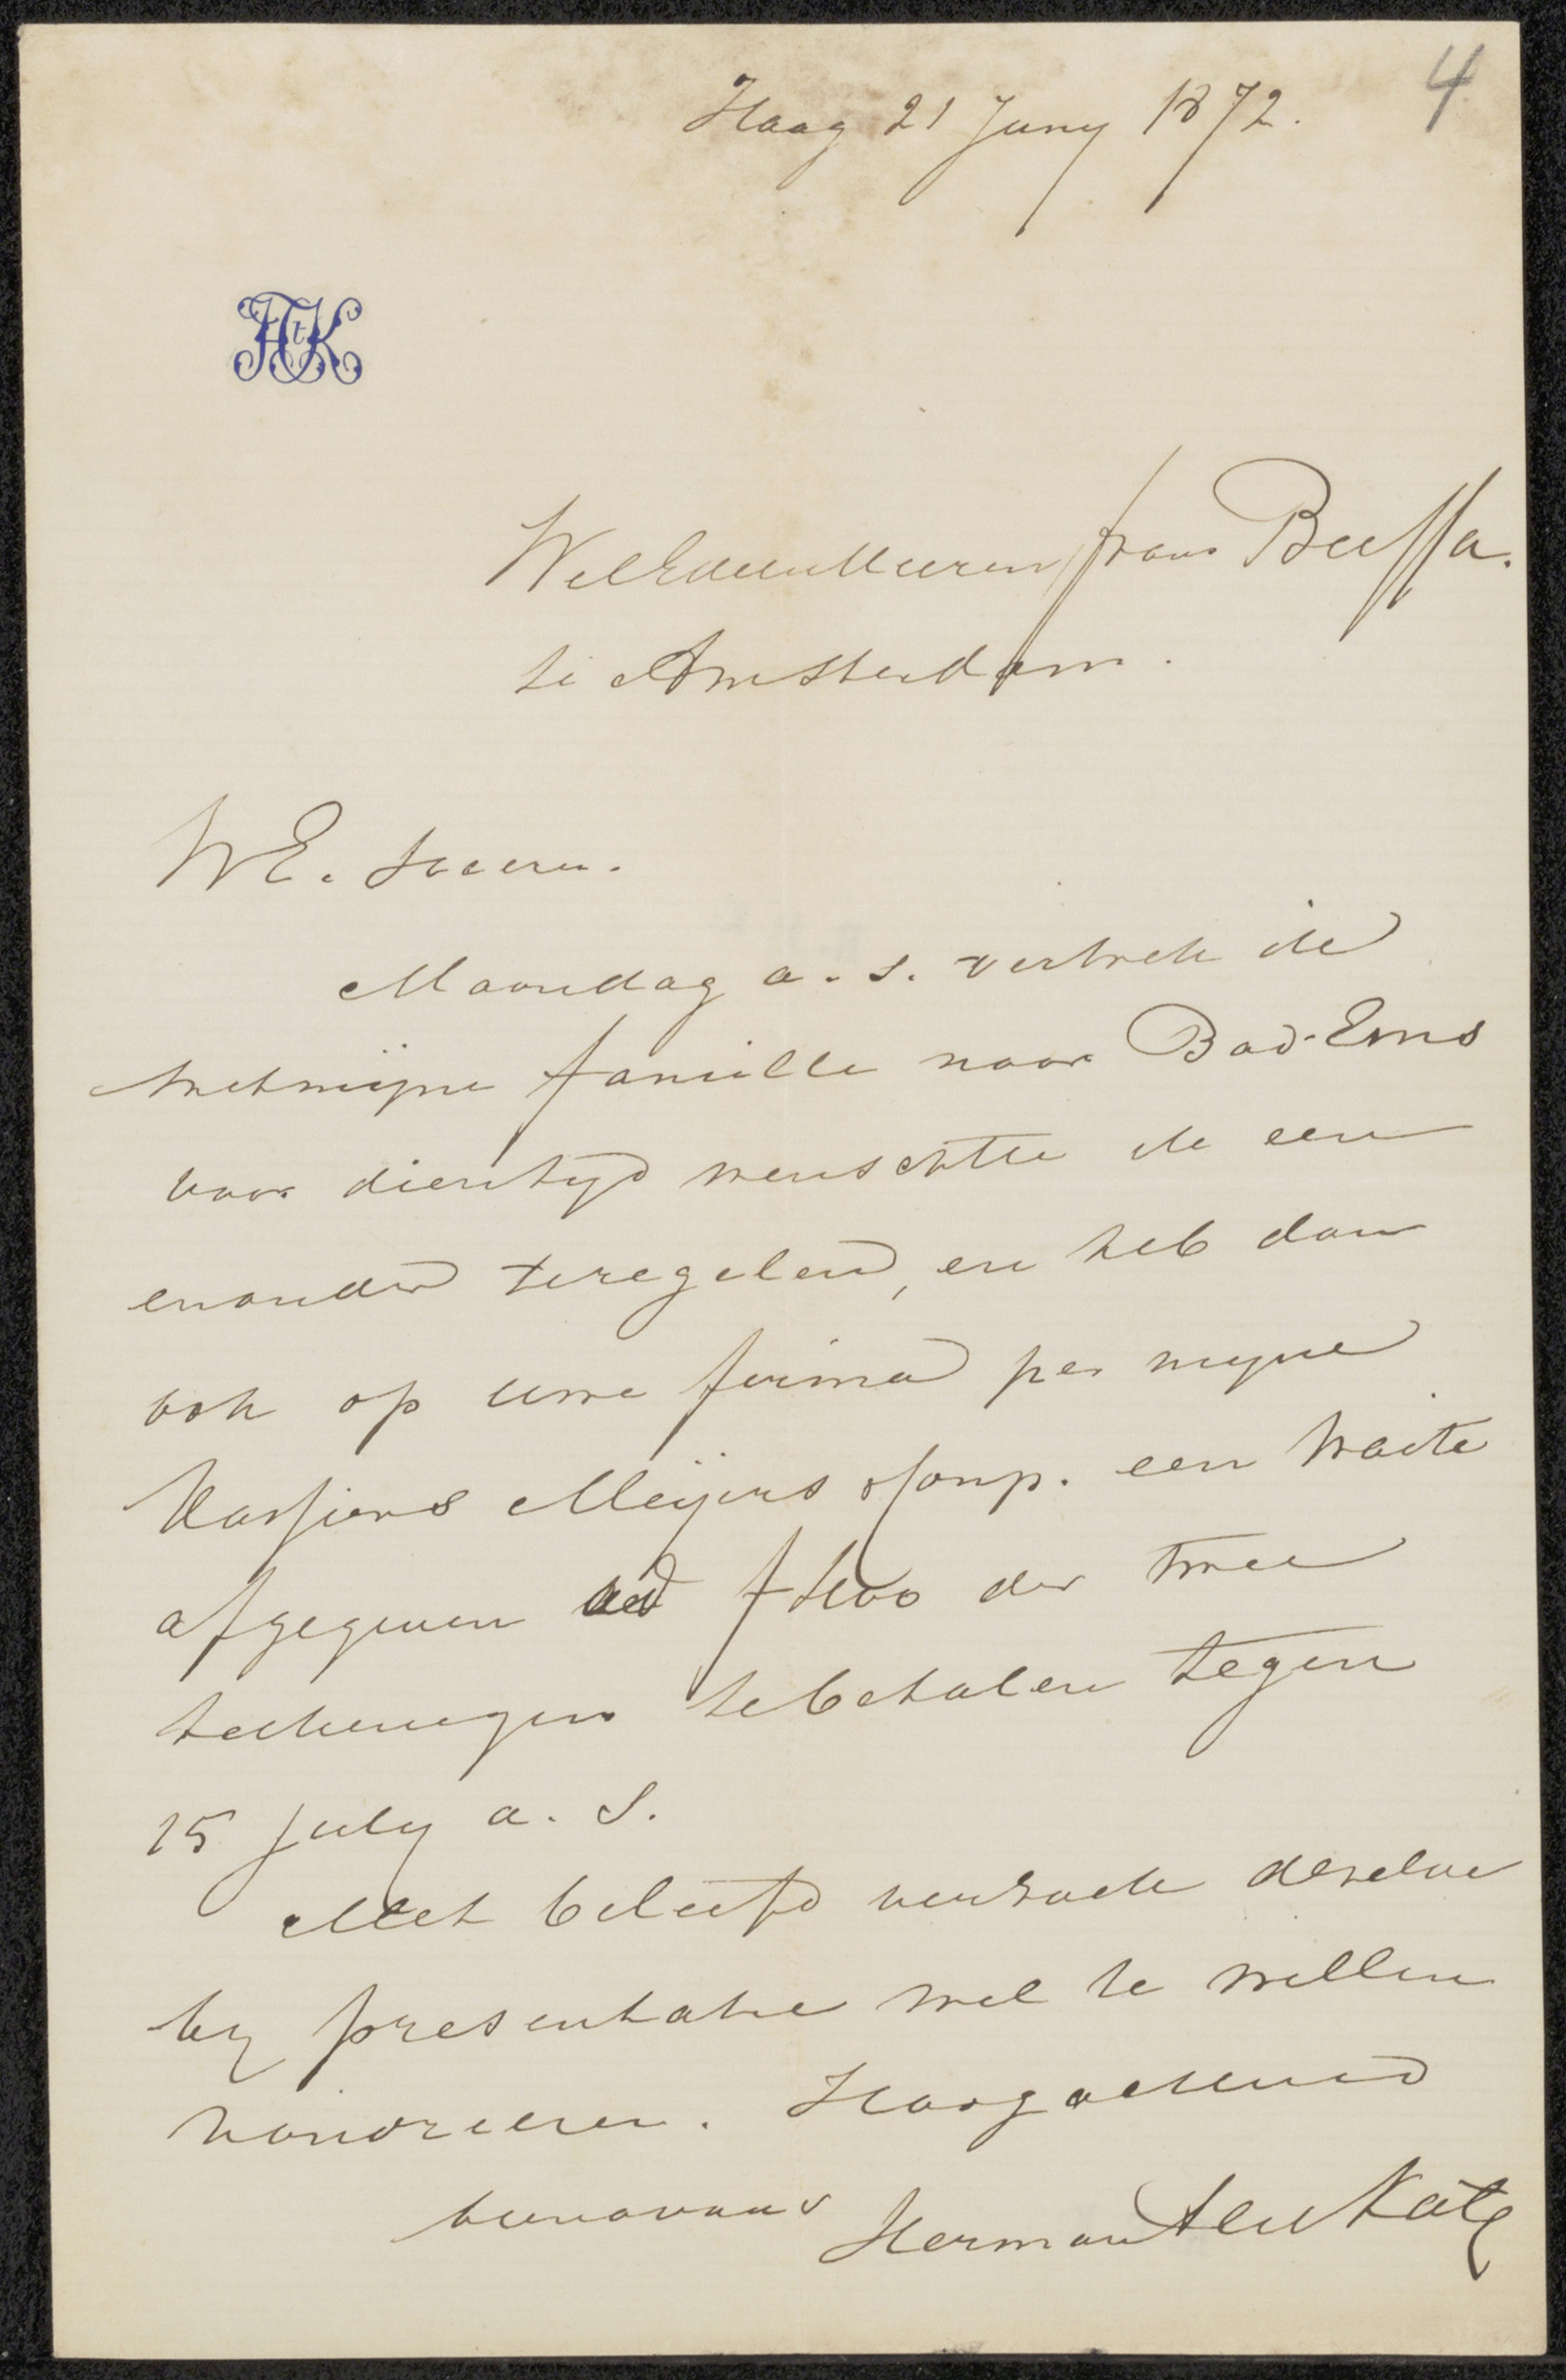 Haag 21 Juny 1872.
4
HtK
WelEdelen Heeren frans Buffa.
te Amsterdam.
WE. heeren.
Maandag a. s. vertrek ik
met mijne famille naar Bad-Ems
voor dien tyd wenschte ik een
en ander te regelend, en heb dan
ook op uwe firma per myne
Kassiers Meijers & Comp. een traite
afgegeven ad f 400 der twee
teekeningen te betalen tegen
15 July a. S.
Met beleefd verzoek dezelve
by presentatie wel te willen
honoreeren. Hoogachtend
Herman ten Kate